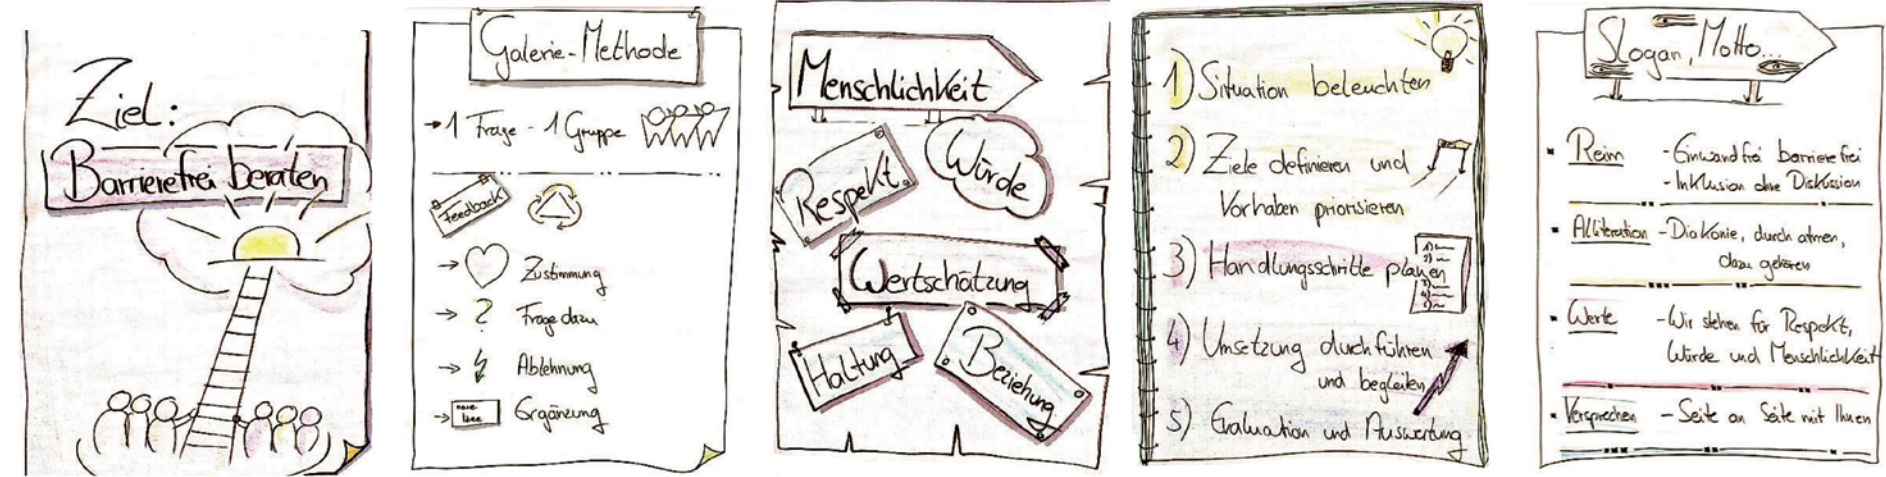 Ziel:
Barrierefrei beraten
Galerie-Methode
→ 1 Frage - 1 Gruppe
Feedback
→ Zustimmung
→ ? Frage dazu
→ Ablehnung
→ neue Idee Ergänzung
Menschlichkeit
Respekt
Würde
Wertschätzung
Haltung
Beziehung
1) Situation beleuchten
2) Ziele definieren und
Vorhaben priorisieren
3) Handlungsschritte planen
1)
2)
3)
4)
5)
4) Umsetzung durchführen
und begleiten
5) Evaluation und Auswertung
Slogan, Motto...
▪ Reim - Einwandfrei barrierefrei
- Inklusion ohne Diskussion
▪ Alliteration - Diakonie, durch atmen,
dazu gehören
▪ Werte - Wir stehen für Respekt,
Würde und Menschlichkeit
▪ Versprechen - Seite an Seite mit Ihnen